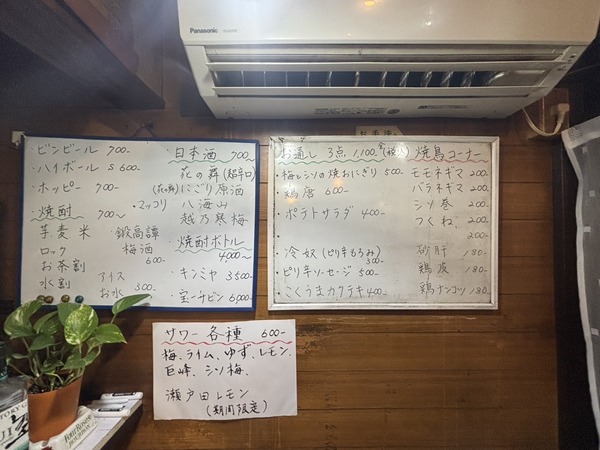 Panasonic
お手洗
ビンビール 700-
ハイボール S 600-
ホッピー 700-
焼酎 700~
芋 麦 米
ロック
お茶割
水割
・マッコリ
・鍛高譚
梅酒
600-
アイス
お水 300-
日本酒 700~
花の舞(超辛口)
(花の舞)にごり原酒
八海山
越乃寒梅
・焼酎ボトル
4,000~
・キンミヤ 3500
・宝一チビン 6,000
お通し 3点 1,100-
・梅レシソの焼おにぎり 500-
・鶏唐 600-
・ポテトサラダ 400-
・冷奴(ピリ辛もろみ)
300-
・ピリ辛ソーセージ 500-
・こくうまカクテキ 400-
焼鳥コーナー
モモネギマ 200-
バラネギマ 200-
シソ巻 200-
つくね 200-
200-
砂肝 180-
鶏皮 180-
鶏ナンコツ 180-
サワー 各種 600-
梅、ライム、ゆず、レモン、
巨峰、シソ梅、
瀬戸田レモン
(期間限定)
Four Roses
BOURBON